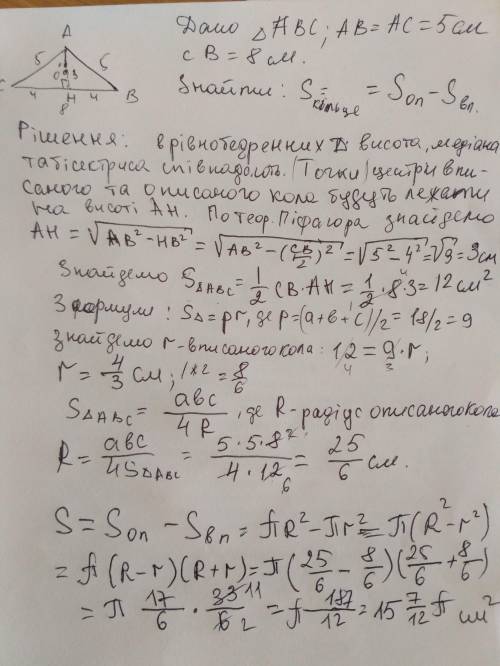 A
5 5
O 3
C 4 H 4 B
8
Дано △ ABC; AB = AC = 5 см
CB = 8 см.
Знайти: Sкільце = Sоп − Sвп.
Рішення: в рівнобедренних △ висота, медіана
та бісектриса співпадають. (Точки) центри впи-
саного та описаного кола будуть лежати
на висоті AH. По теор. Піфагора знайдемо
AH = √(AB² − HB²) = √(AB² − (CB/2)²) = √(5² − 4²) = √9 = 3см
Знайдемо S△ABC = 1/2 CB · AH = 1/2 · 8 · 3 = 12 см²
З формули: S△ = pr, де p = (a+b+c)/2 = 18/2 = 9
знайдемо r-вписаного кола: 12 = 9 · r;
r = 4/3 см; /×2 = 8/6
S△ABC = abc/4R, де R-радіус описаного кола
R = abc/4S△ABC = 5·5·8/4·12 = 25/6 см.
S = Sоп − Sвп = πR² − πr² = π(R² − r²)
= π (R − r)(R + r) = π(25/6 − 8/6)(25/6 + 8/6)
= π 17/6 · 33/6 = π 187/12 = 15 7/12 π см²